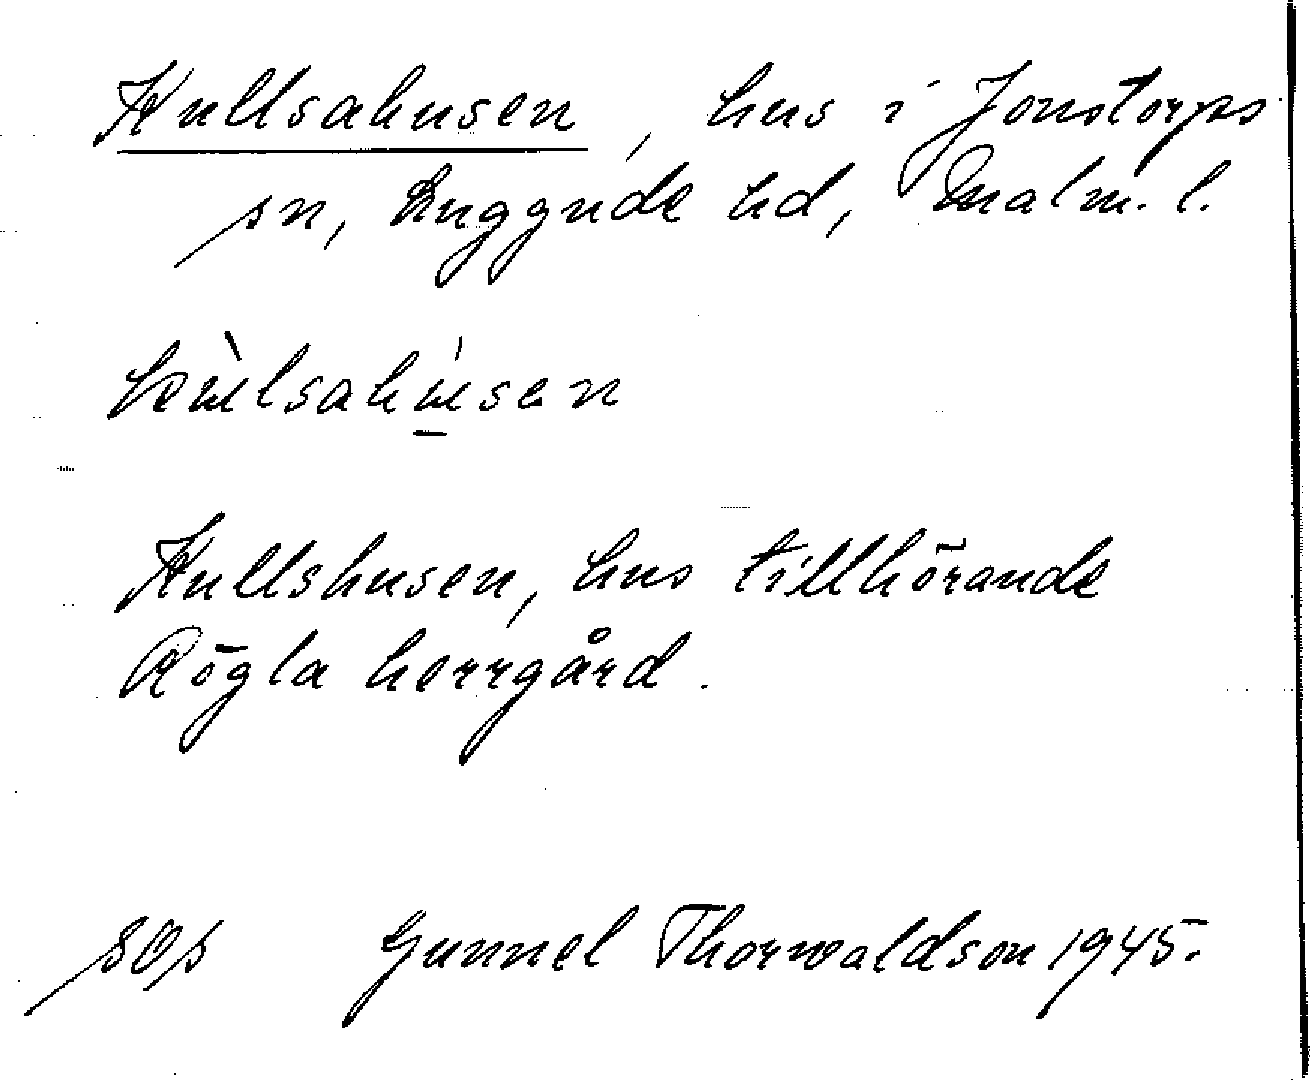 Kullsahusen, hus i Jonstorps
sn, Luggude hd, Malm. l.
Kullshusen, hus tillhörande
Rögla herrgård.
Gunnel Thorwaldson 1945.